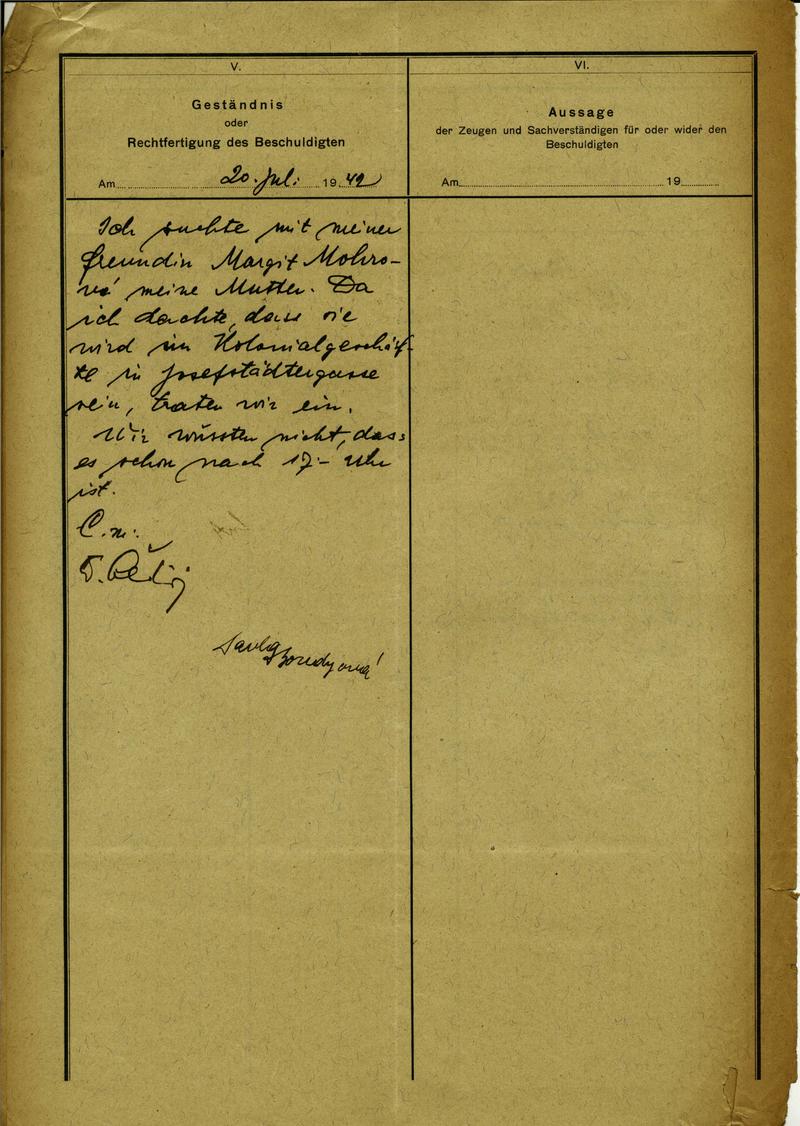 V.
Geständnis
oder
Rechtfertigung des Beschuldigten
Am 20. Juli 19 42
Ich suchte mit meiner
Freundin Margit Mohro-
vá meine Mutter. Da
ich dachte, dass sie
wird im Kolonialgeschäf-
te in Josefstädtergasse
sein, traten wir ein.
Wir wussten nicht, dass
es schon nach 17 - Uhr
ist.
VI.
Aussage
der Zeugen und Sachverständigen für oder wider den
Beschuldigten
Am 19